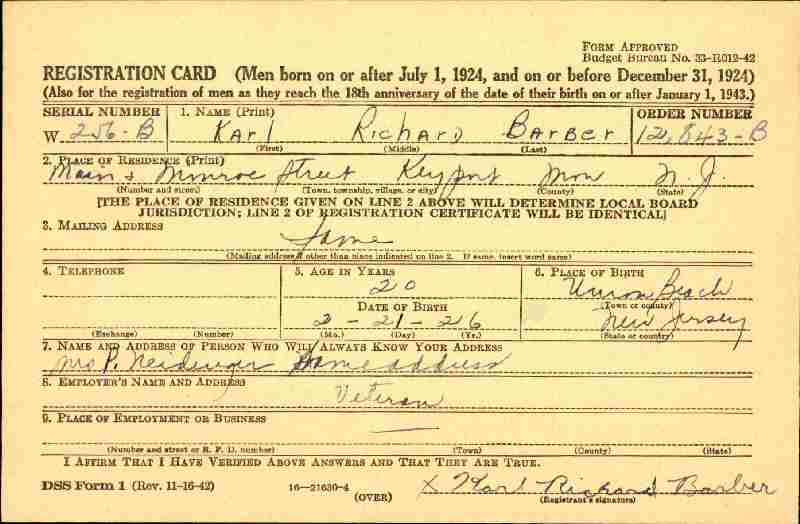 FORM APPROVED
BUDGET BUREAU NO. 33-R012-42
REGISTRATION CARD (Men born on or after July 1, 1924, and on or before December 31, 1924)
(Also for the registration of men as they reach the 18th anniversary of the date of their birth on or after January 1, 1943.)
SERIAL NUMBER 1. NAME (Print) ORDER NUMBER
W 256-B Karl Richard Barber 12,843-B
(First) (Middle) (Last)
2. PLACE OF RESIDENCE (Print)
Main & Monroe Street Keyport Mon N. J.
(Number and street) (Town, township, village, or city) (County) (State)
[THE PLACE OF RESIDENCE GIVEN ON LINE 2 ABOVE WILL DETERMINE LOCAL BOARD
JURISDICTION; LINE 2 OF REGISTRATION CERTIFICATE WILL BE IDENTICAL]
3. MAILING ADDRESS
Same
(Mailing address if other than place indicated on line 2. If same, insert word same)
4. TELEPHONE 5. AGE IN YEARS 6. PLACE OF BIRTH
20 Union Beach
DATE OF BIRTH (Town or county)
2 - 21 - 26 New Jersey
(Exchange) (Number) (Mo.) (Day) (Yr.) (State or country)
7. NAME AND ADDRESS OF PERSON WHO WILL ALWAYS KNOW YOUR ADDRESS
Mrs P. Same address
8. EMPLOYER'S NAME AND ADDRESS
Veteran
9. PLACE OF EMPLOYMENT OR BUSINESS
(Number and street or R. F. D. number) (Town) (County) (State)
I AFFIRM THAT I HAVE VERIFIED ABOVE ANSWERS AND THAT THEY ARE TRUE.
DSS Form 1 (Rev. 11-16-42) 16—21630-4 (OVER) X Karl Richard Barber
(Registrant's signature)